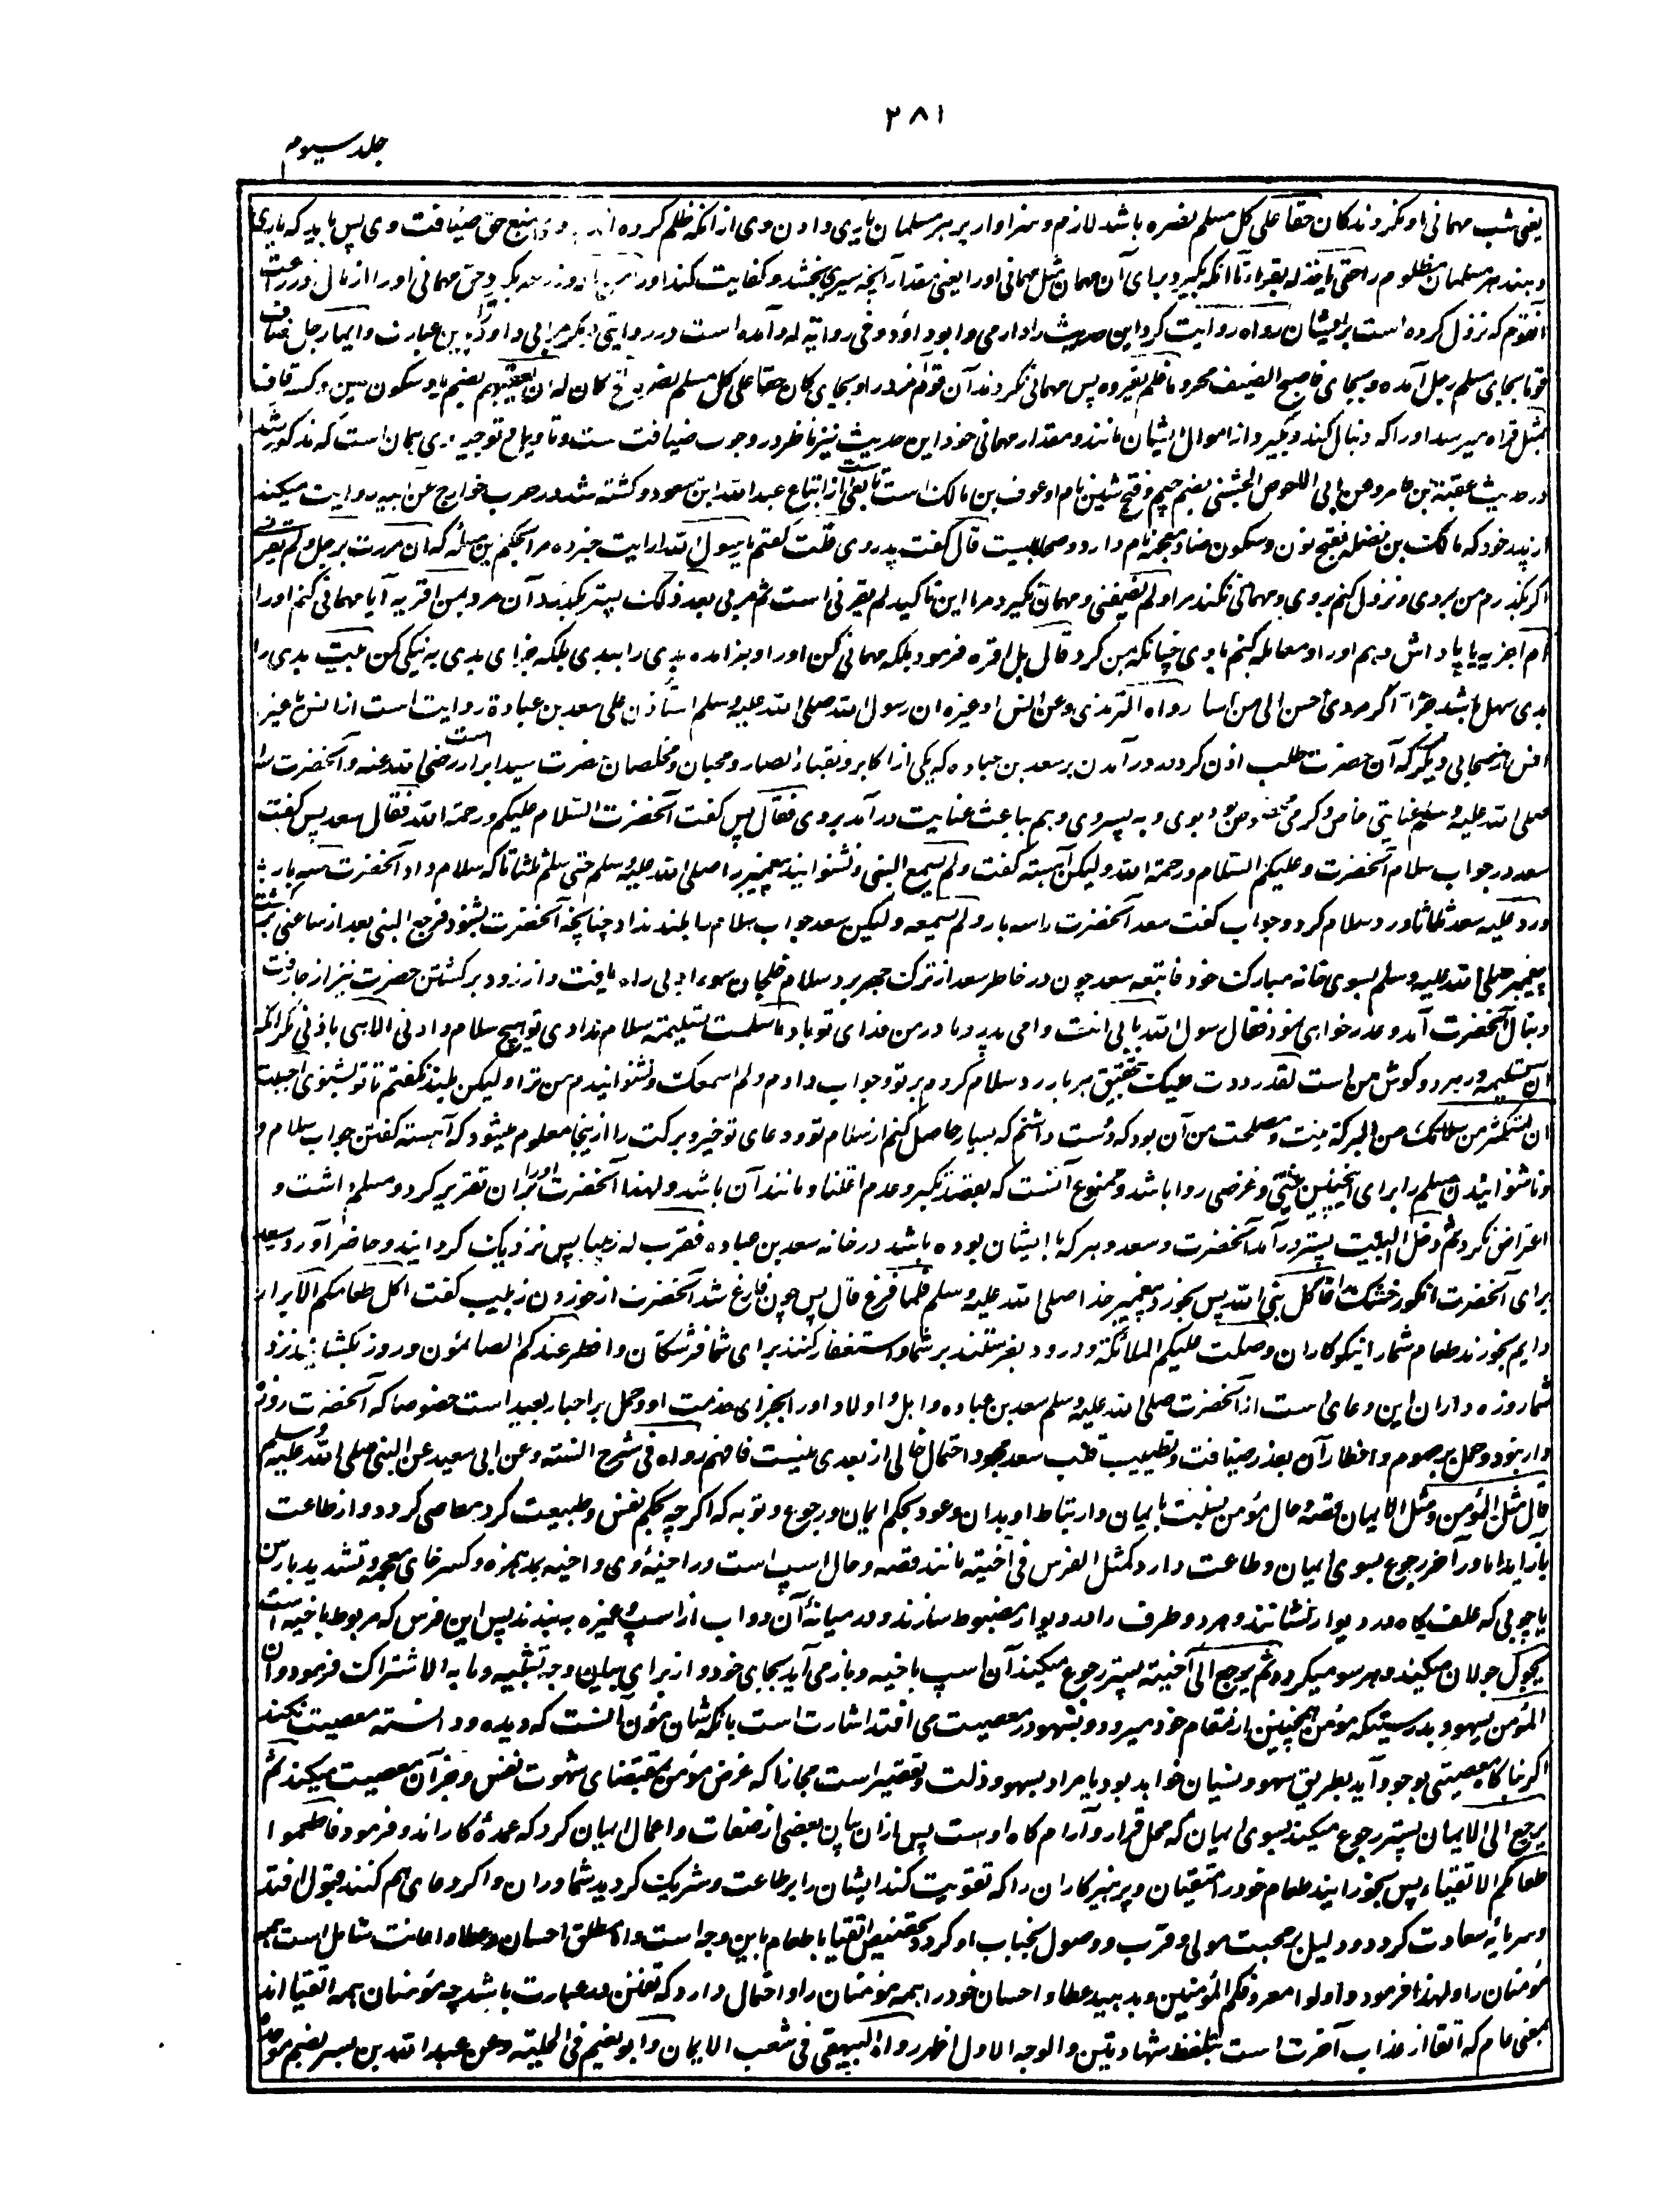 ٣٨١
جلد سیوم
یعنی شب مهمانی او نکردند کان حقا علی کل مسلم نصره باشد لازم و سزاوار بر هر مسلمان یاری دادن وی از انکه ظلم کرده اند بروی و منع حق ضیافت وی پس باید که یاری
دهند هر مسلمان مظلوم را حتی یاخذ له بقراه تا انکه بگیرد برای آن مهمان مثل مهمانی او را یعنی مقدار آنچه سیری بخشد و کفایت کند او را و بگیرد حق مهمانی او را از مال وزرعت
آنقوم که نزول کرده است برایشان رواه روایت کرد این حدیث را دارمی و ابو داؤد و فی روایة له و آمده است در روایتی دیگر مر ابی داود را بدین عبارت و ایما رجل ضاف
قوما بجای مسلم رجل آمده و بجای فاصبح الضیف محروما فلم یقروه پس مهمانی نکردند آن قوم مرد را و بجای کان حقا علی کل مسلم نصره الخ کان له ان یعقبهم بضم یا و سکون عین و کسر قاف
بمثل قراه میرسد او را که دنبال کند و بگیرد از اموال ایشان مانند و مقدار مهمانی خود این حدیث نیز ناظر در وجوب ضیافت ست و تاویل و توجیه وی همان است که مذکور شد
در حدیث عقبة بن عامر و عن ابی الاحوص الجشمی بضم جیم و فتح شین نام او عوف بن مالک است تابعی ست از اتباع عبد الله ابن مسعود و کشته شد در حرب خوارج عن ابیه روایت میکند
از پدر خود که مالک بن نضله بفتح نون و سکون ضاد معجمه نام دارد و صحابیست قال گفت پدر وی قلت گفتم یا رسول الله ارایت خبر ده مرا حکم این مسئله که ان مررت برجل و لم یقرنی
اگر بگذرم من بمردی و نزول کنم بروی و مهمانی نکند مرا و لم یضیفنی و مهمان نگیرد مرا این تاکید لم یقرنی است ثم مر بی بعد ذلک پستر بگذرد آن مرد بمن اقریه آیا مهمانی کنم او را
ام اجزیه یا پاداش دهم او را و معامله کنم با وی چنانکه بمن کرد قال بل اقره فرمود بلکه مهمانی کن او را و جزا مده بدی را ببدی بلکه جزای بدی به نیکی کن بیت بدی را
بدی سهل باشد جزا * اگر مردی احسن الی من اسا رواه الترمذی و عن انس او غیره ان رسول الله صلی الله علیه و سلم استأذن علی سعد بن عبادة روایت است از انس یا غیر
انس از صحابی دیگر که آن حضرت طلب اذن کردند در آمدن بر سعد بن عباده که یکی از اکابر و نقباء انصار و محبان و مخلصان حضرت سید ابرار است رضی الله عنه و آنحضرت را
صلی الله علیه و سلم عنایتی خاص و کرمی مخصوص بود بوی و به پسر وی و هم باعث عنایت درآمد بروی فقال پس گفت آنحضرت السلام علیکم و رحمة الله فقال سعد پس گفت
سعد در جواب سلام آنحضرت و علیکم السلام و رحمة الله و لیکن آهسته گفت و لم یسمع النبی و نشنوانید پیغمبر را صلی الله علیه و سلم حتی سلم ثلثا تا که سلام داد آنحضرت سه بار
و رد علیه سعد ثلاثا و رد سلام کرد و جواب گفت سعد آنحضرت را سه بار و لم یسمعه و لیکن سعد جواب سلام را بلند نداد چنانچه آنحضرت بشنود فرجع النبی بعد از ساعتی
پیغمبر صلی الله علیه و سلم بسوی خانه مبارکت خود فاتبعه سعد چون در خاطر سعد از ترک جهر برد سلام خلجان سوء ادبی راه یافت و از زود برگشتن حضرت نیز از جا رفت
دنبال آنحضرت آمد و عذر خواهی نمود فقال یا رسول الله بابی انت و امی پدر و مادر من فدای تو باد ما سلمت تسلیمة سلام ندادی تو هیچ سلام دادنی الا هی باذنی مگر آنکه
آن تسلیمه در هر دو گوش من است لقد رددت علیک تحقیق هر بار رد سلام کردم بر تو و جواب دادم و لم اسمعک و نشنوانیدم من ترا و لیکن بلند نگفتم تا تو بشنوی احببت
ان استکثر من سلامک من البرکة نیت و مصلحت من آن بود که دوست داشتم که بسیار حاصل کنم از سلام تو و دعای تو خیر و برکت را ازینجا معلوم میشود که آهسته گفتن جواب سلام و
و ناشنوانیدن مسلم را برای اینچنین نیتی و غرضی روا باشد و ممنوع آنست که بقصد تکبر و عدم اعتنا و مانند آن باشد و لهذا آنحضرت او را بران تقریر کرد و مسلم داشت و
اعتراض نکرد ثم دخل البیت پستر درآمد آنحضرت و سعد و هر که با ایشان بوده باشد در خانه سعد بن عباده فقرب له زبیبا پس نزدیک گردانید و حاضر آورد سعد
برای آنحضرت انگور خشک را فاکل نبی الله پس بخورد پیغمبر خدا صلی الله علیه و سلم فلما فرغ قال پس چون فارغ شد آنحضرت از خوردن زبیب گفت اکل طعامکم الابرار
دایم بخورند طعام شما را نیکوکاران و صلت علیکم الملائکة و درود بفرستند بر شما و استغفار کنند برای شما فرشتگان و افطر عندکم الصائمون و روزه بکشایند نزد
شما روزه داران این دعای است از آنحضرت صلی الله علیه و سلم سعد بن عباده و اهل و اولاد او را بجزای خدمت او و حمل بر اخبار بعید است خصوصا که آنحضرت روزه
دار نبود و حمل بر صوم و افطار آن بعذر ضیافت و تطییب قلب سعد مجرد احتمال خالی از بعدی نیست فافهم رواه فی شرح السنة و عن ابی سعید عن النبی صلی الله علیه و سلم
قال مثل المؤمن و مثل الایمان قصه و حال مؤمن بنسبت بایمان و ارتباط او بدان و عود بحکم ایمان و رجوع و توبه که اگر چه بحکم نفس و طبیعت گرد معاصی گردد و از طاعت
باز آید اما در آخر رجوع بسوی ایمان و طاعت دارد کمثل الفرس فی آخیته مانند قصه و حال اسپ است در اخیهٔ وی و اخیه بمد همزه و کسر خای معجمه و تشدید یا رسن
یا چوبی که علف گاه در دیوار بنشانند و هر دو طرف را در دیوار مضبوط سازند و در میانهٔ آن دواب از اسپ و غیره ببندند پس این فرس که مربوط باخیه است
یجول جولان میکند و هر سو میگردد ثم یرجع الی آخیته پستر رجوع میکند آن اسپ باخیه و باز می آید بجای خود و از برای بیان وجه تشبیه و ما به الاشتراک فرمود و ان
المؤمن یسهو و بدرستیکه مؤمن همچنین از مقام خود میرود و بسهو در معصیت می افتد اشارت است بانکه شان مؤمن آنست که دیده و دانسته معصیت نکند
اگر ناگاه معصیتی بوجود آید بطریق سهو و نسیان خواهد بود یا مراد بسهو و ذلت و تقصیر است مجازا که غرض مؤمن بمقتضای شهوت نفس و جز آن معصیت میکند ثم
یرجع الی الایمان پستر رجوع میکند بسوی ایمان که محل قرار و آرام گاه اوست پس ازان بیان بعضی از صفات و اعمال ایمان کرد که عمدهٔ کار اند و فرمود فاطعموا
طعامکم الاتقیاء پس بخورانید طعام خود را متقیان و پرهیزگاران را که تقویت کند ایشان را بر طاعت و شریک گردید شما دران و اگر دعای هم کنند قبول افتد
و سرمایه سعادت گردد و دلیل بر محبت مولی و قرب و وصول بجناب او گردد و تخصیص اتقیا باطعام باین وجه است و الا مطلق احسان و عطا و اعانت شامل است همه
مؤمنان را و لهذا فرمود و اولوا معروفکم المؤمنین و بدهید عطا و احسان خود را همه مؤمنان را و احتمال دارد که تفنن در عبارت باشد چه مؤمنان همه اتقیا اند
بمعنی عام که اتقا از عذاب آخرت است بتلفظ شهادتین و الوجه الاول اظهر رواه البیهقی فی شعب الایمان و ابو نعیم فی الحلیة و عن عبد الله بن بسر بضم موحده